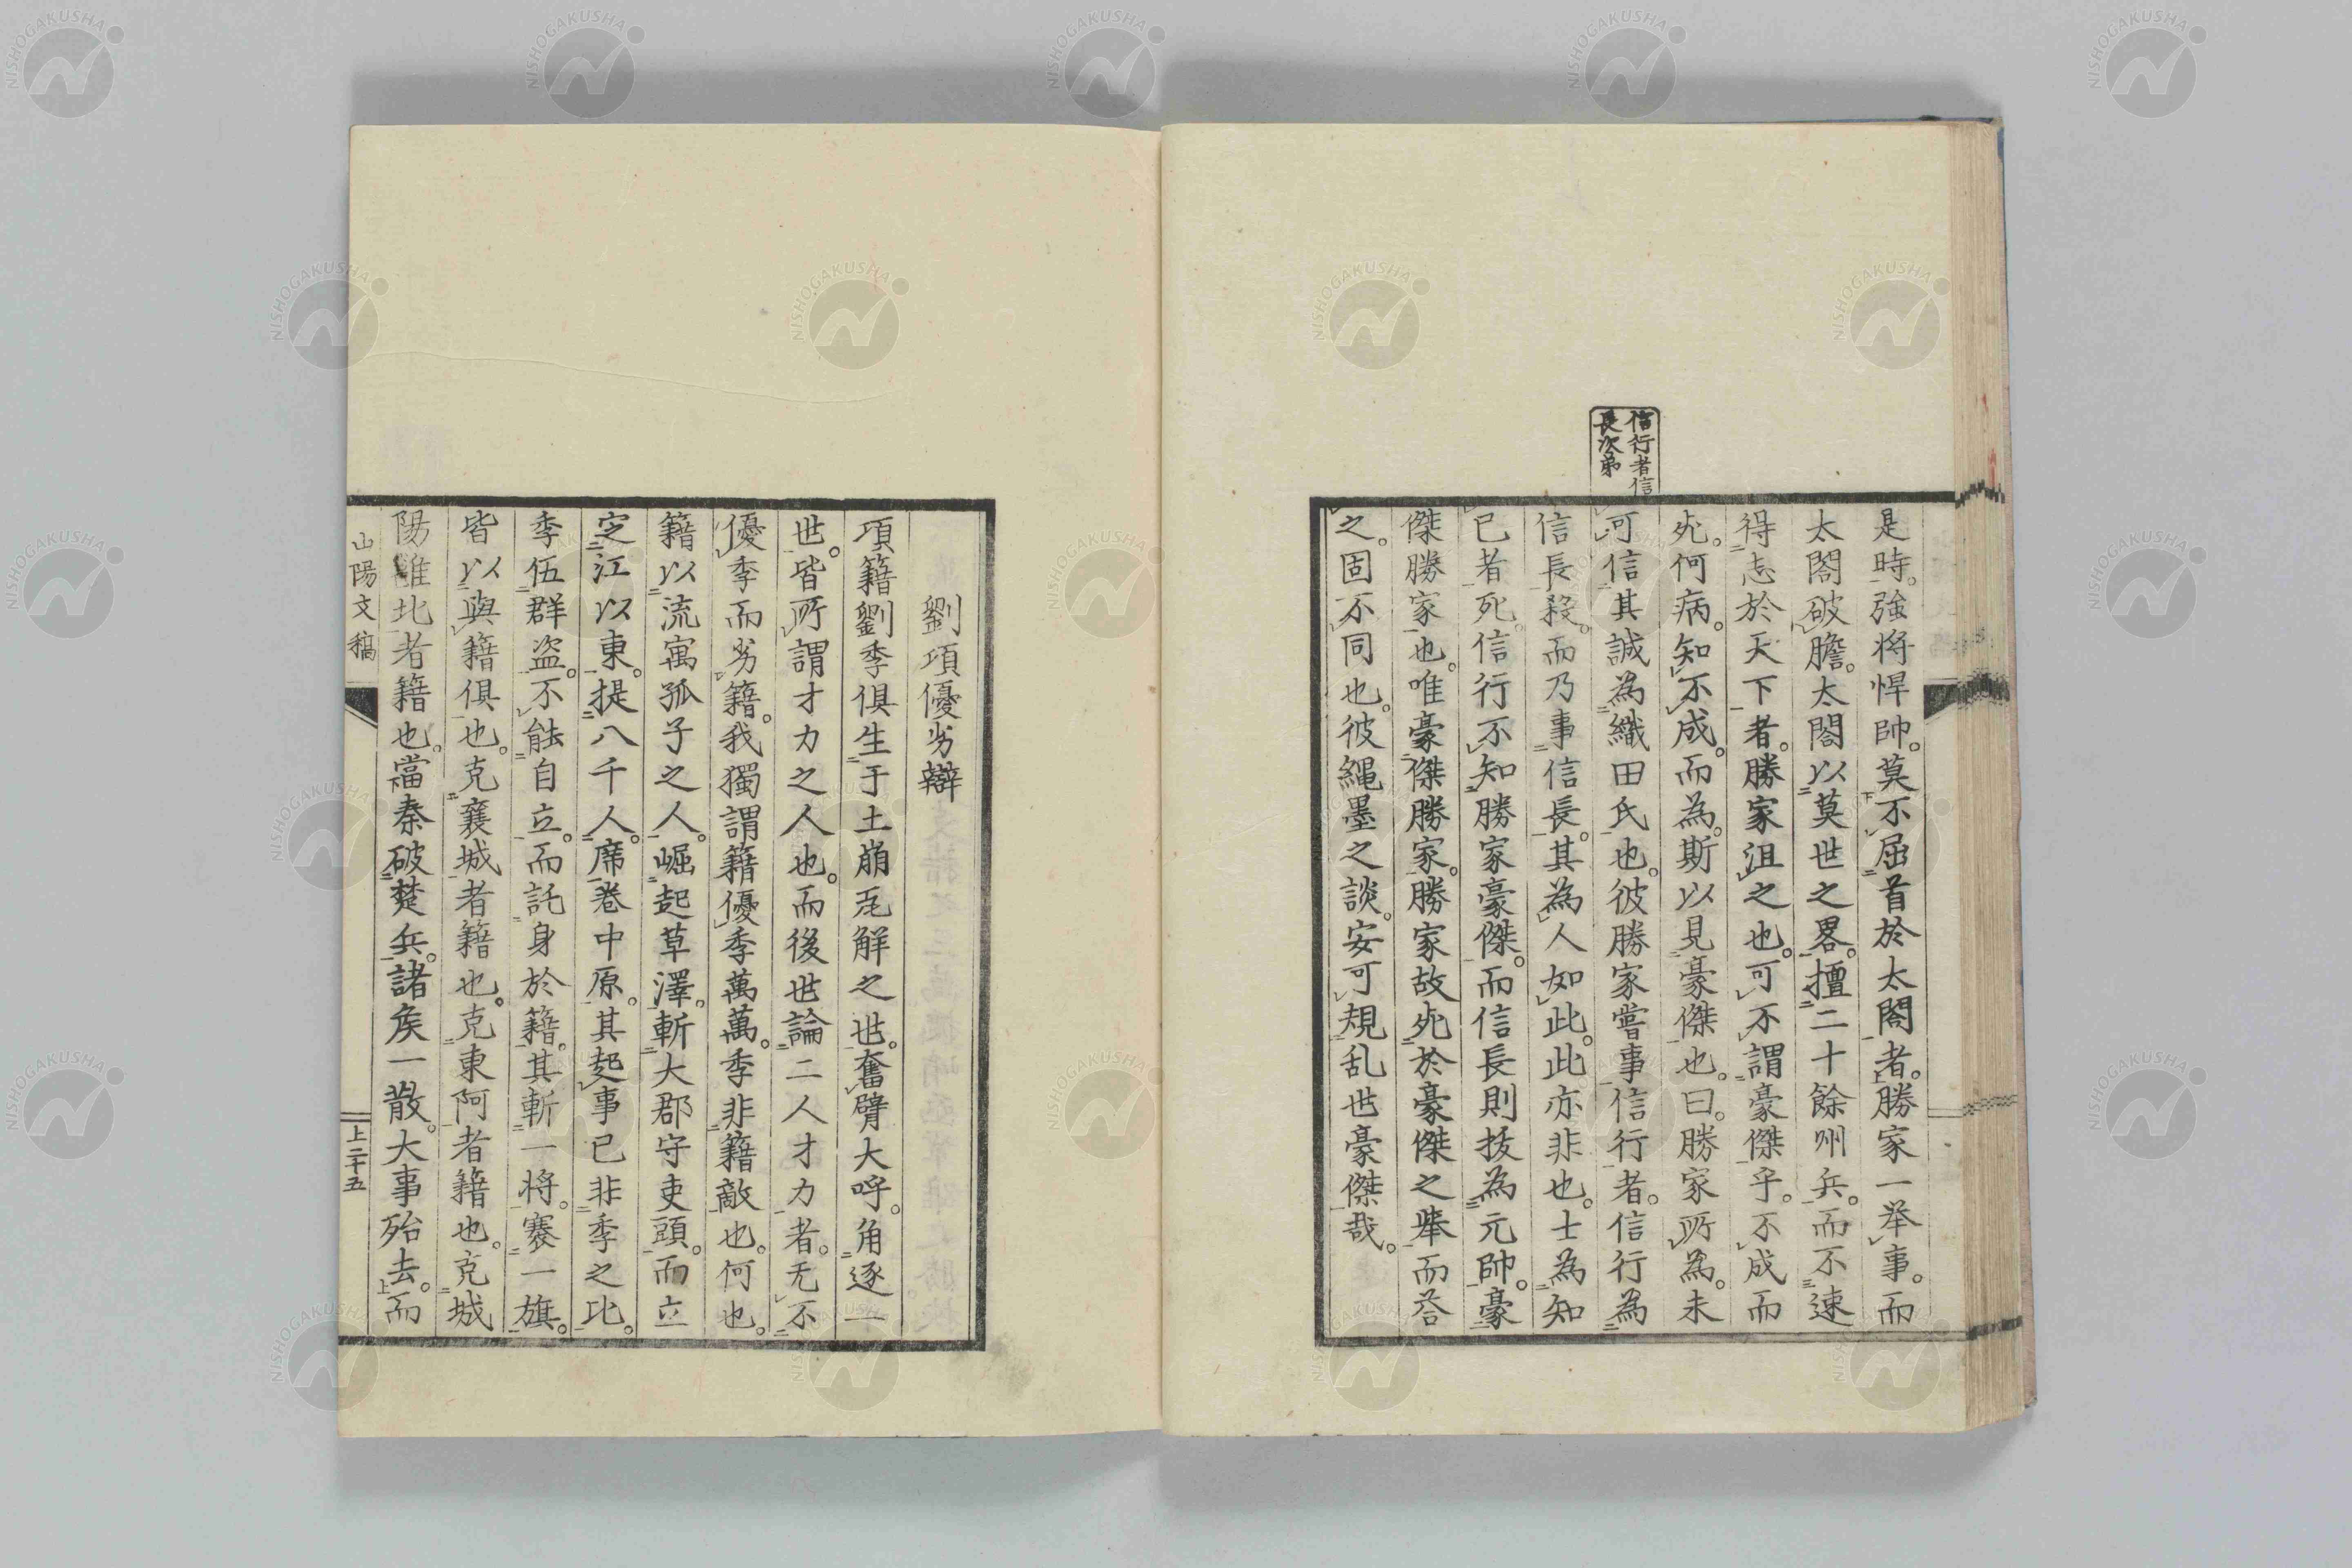 信行者信
長次弟
是時。強将悍帥。莫不屈首於太閤者。勝家一举事。而
太閤破膽。太閤以莫世之畧。擅二十餘州兵。而不速
得志於天下者。勝家沮之也。可不謂豪傑乎。不成而
死。何病。知不成。而為。斯以見豪傑也。曰。勝家所為。未
可信其誠為織田氏也。彼勝家嘗事信行者。信行為
信長殺。而乃事信長。其為人如此。此亦非也。士為知
已者死。信行不知勝家豪傑。而信長則抜為元帥。豪
傑勝家也。唯豪傑勝家。勝家故死於豪傑之挙而荅
之。固不同也。彼縄墨之談。安可規乱世豪傑哉。
劉項優劣辯
項籍劉季俱生于土崩瓦解之世。奮臂大呼。角逐一
世。皆所謂才力之人也。而後世論二人才力者。无不
優季而劣籍。我獨謂籍優季萬萬。季非籍敵也。何也。
籍以流寓孤子之人。崛起草澤。斬大郡守吏頭。而立
定江以東。提八千人。席巻中原。其起事已非季之比。
季伍群盗。不能自立。而託身於籍。其斬一将。搴一旗。
皆以與籍俱也。克襄城者籍也。克東阿者籍也。克城
陽雒北者籍也。當秦破楚兵。諸矦一散。大事殆去。而
山陽文稿
上二十五
NISHOGAKUSHA